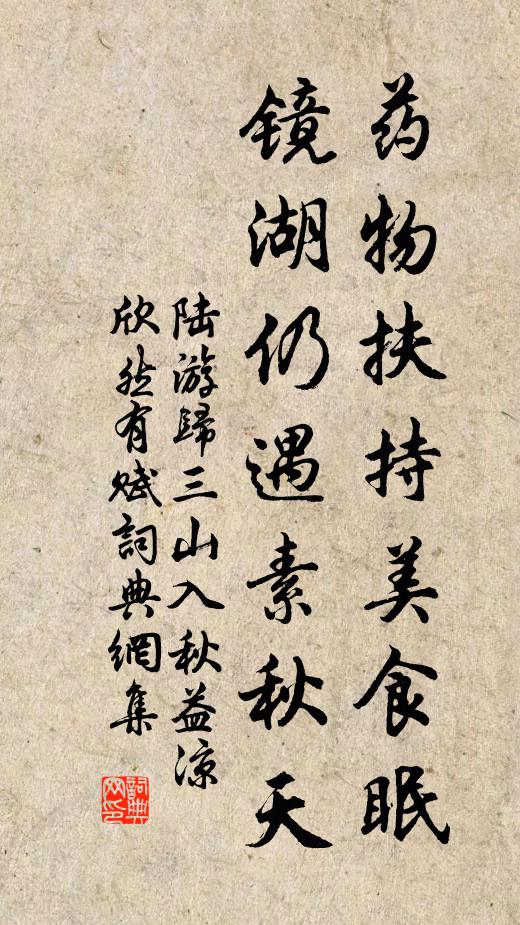 药物扶持美食眠
镜湖仍遇素秋天
陆游歸三山入秋益凉
欣然有赋詞典網集
詞典
网印